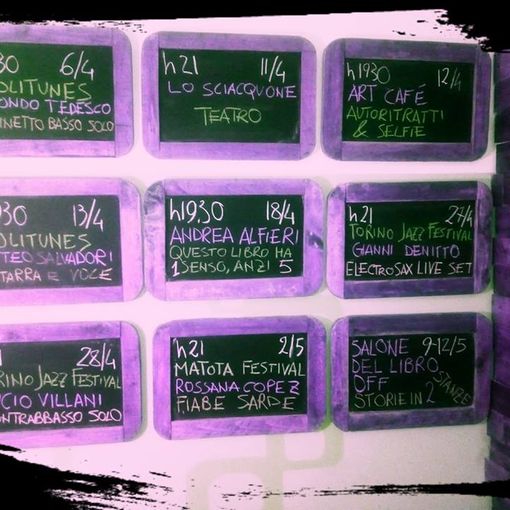 30 6/4
OLITUNES
ONDO TEDESCO
INETTO BASSO SOLO
h21 11/4
LO SCIACQUONE
TEATRO
h1930 12/4
ART CAFÉ
AUTORITRATTI
& SELFIE
30 13/4
OLITUNES
TEO SALVADORI
TARRA E VOCE
h19,30 18/4
ANDREA ALFIERI
QUESTO LIBRO HA
1 SENSO, ANZI 5
h21 27/4
TORINO JAZZ FESTIVAL
GIANNI DENITTO
ELECTROSAX LIVE SET
1 28/4
RINO JAZZ FESTIVAL
CIO VILLANI
ONTRABBASSO SOLO
h21 2/5
MATOTA FESTIVAL
ROSSANA COPEZ
FIABE SARDE
SALONE 9-12/5
DEL LIBRO
OFF
STORIE IN 2 STANZE